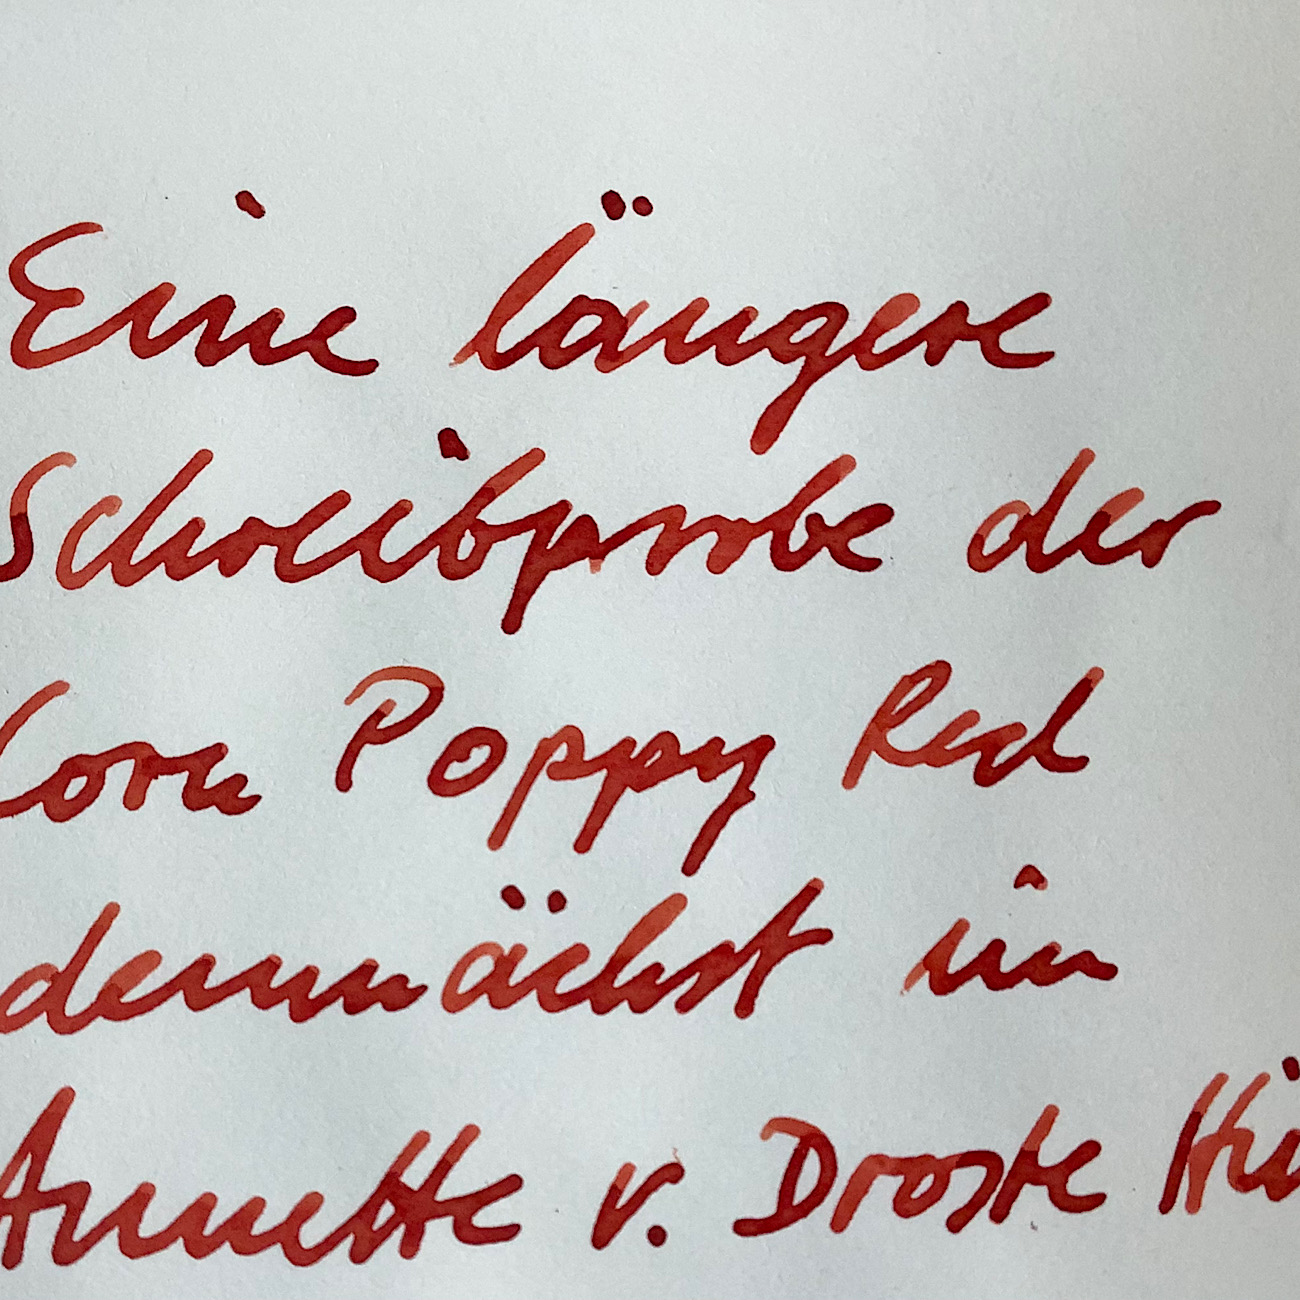 Eine längere
Schreibprobe der
Corn Poppy Red
demnächst im
Annette v. Droste Hü